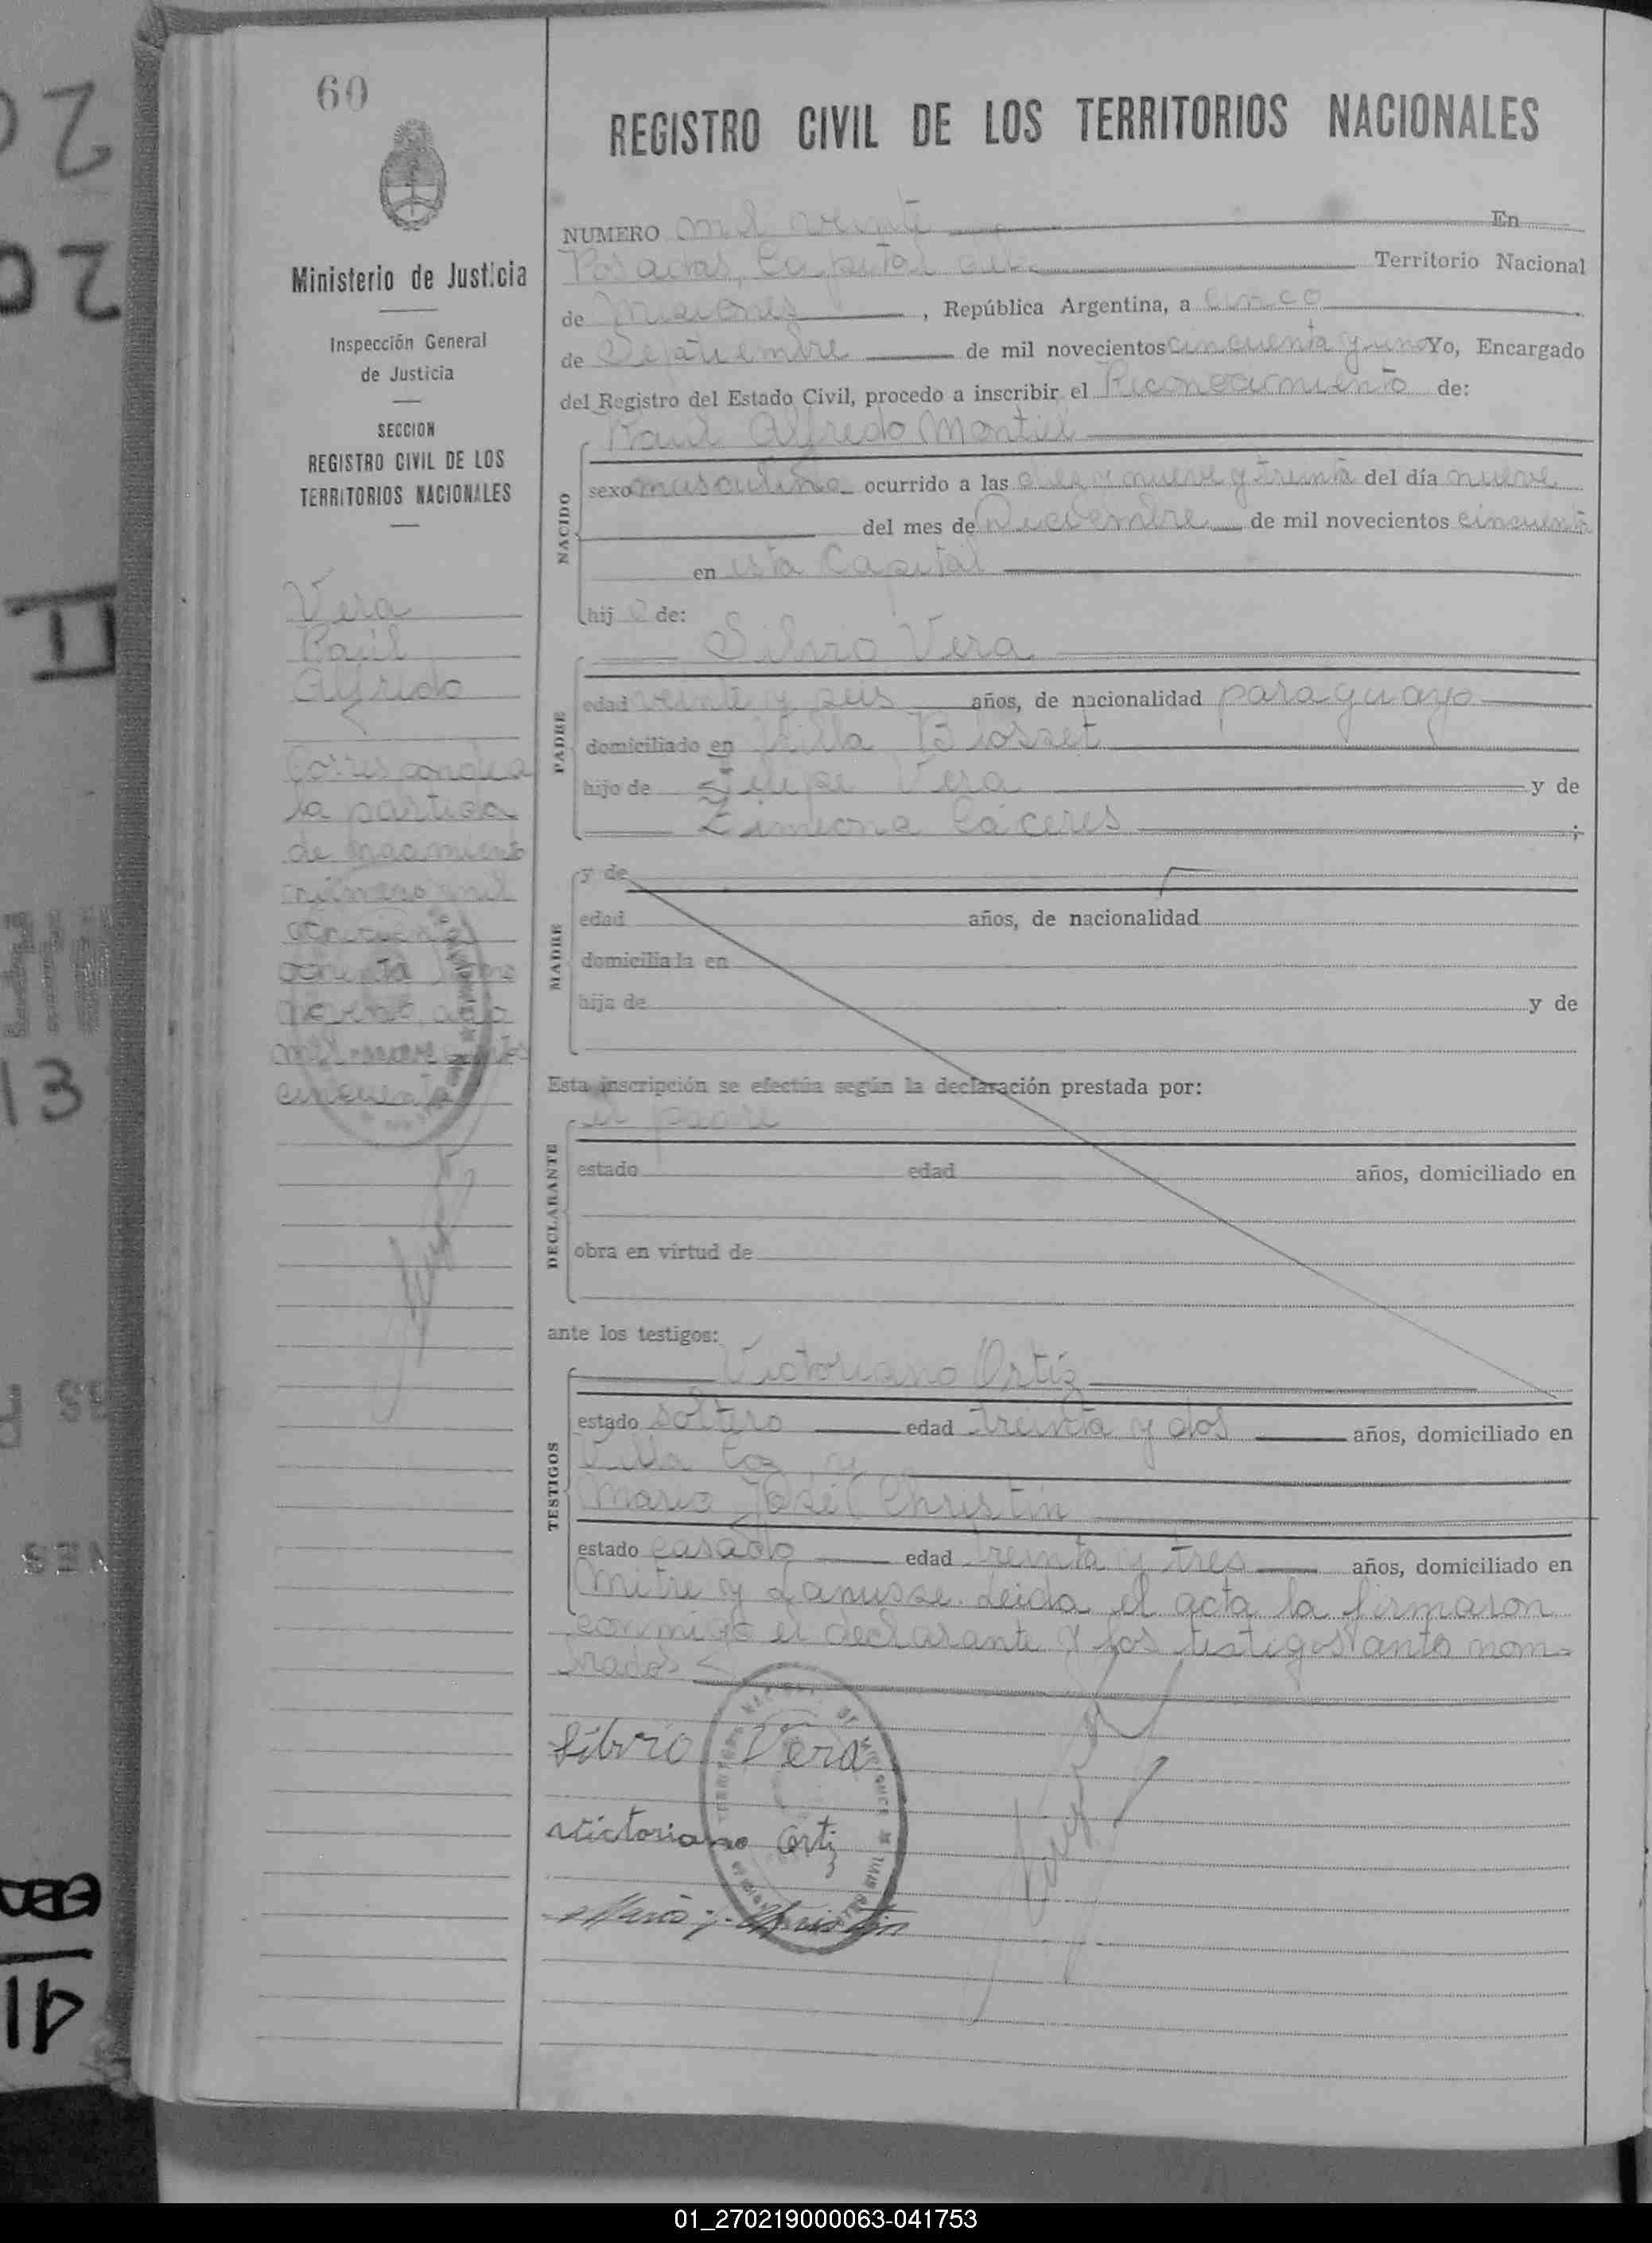 60
Ministerio de Justicia
Inspección General
de Justicia
SECCION
REGISTRO CIVIL DE LOS
TERRITORIOS NACIONALES
Vera
Raúl
Alfredo
Corresponde a
la partida
de nacimiento
número mil
ochenta
noveno año
mil novecientos
cincuenta
REGISTRO CIVIL DE LOS TERRITORIOS NACIONALES
NUMERO mil veinte En
Posadas, Capital del Territorio Nacional
de Misiones, República Argentina, a cinco
de Septiembre de mil novecientos cincuenta y uno Yo, Encargado
del Registro del Estado Civil, procedo a inscribir el Reconocimiento de:
Raúl Alfredo Montiel
NACIDO
sexo masculino ocurrido a las diez y nueve y treinta del día nueve
del mes de Diciembre de mil novecientos cincuenta
en esta Capital
hij o de:
Silvio Vera
PADRE
edad veinte y seis años, de nacionalidad paraguayo
domiciliado en Villa Blosset
hijo de Felipe Vera y de
Zimeona Cáceres ;
MADRE
y de
edad años, de nacionalidad
domiciliada en
hija de y de
Esta inscripción se efectúa según la declaración prestada por:
el padre
DECLARANTE
estado edad años, domiciliado en
obra en virtud de
ante los testigos:
Victoriano Ortíz
TESTIGOS
estado soltero edad treinta y dos años, domiciliado en
Villa Coz y
Mario José Christin
estado casado edad treinta y tres años, domiciliado en
Mitre y Lanusse. Leida el acta la firmaron
conmigo el declarante y los testigos antes nom-
brados
Silvio Vera
Victoriano Ortiz
Mario J. Christin
01_270219000063-041753